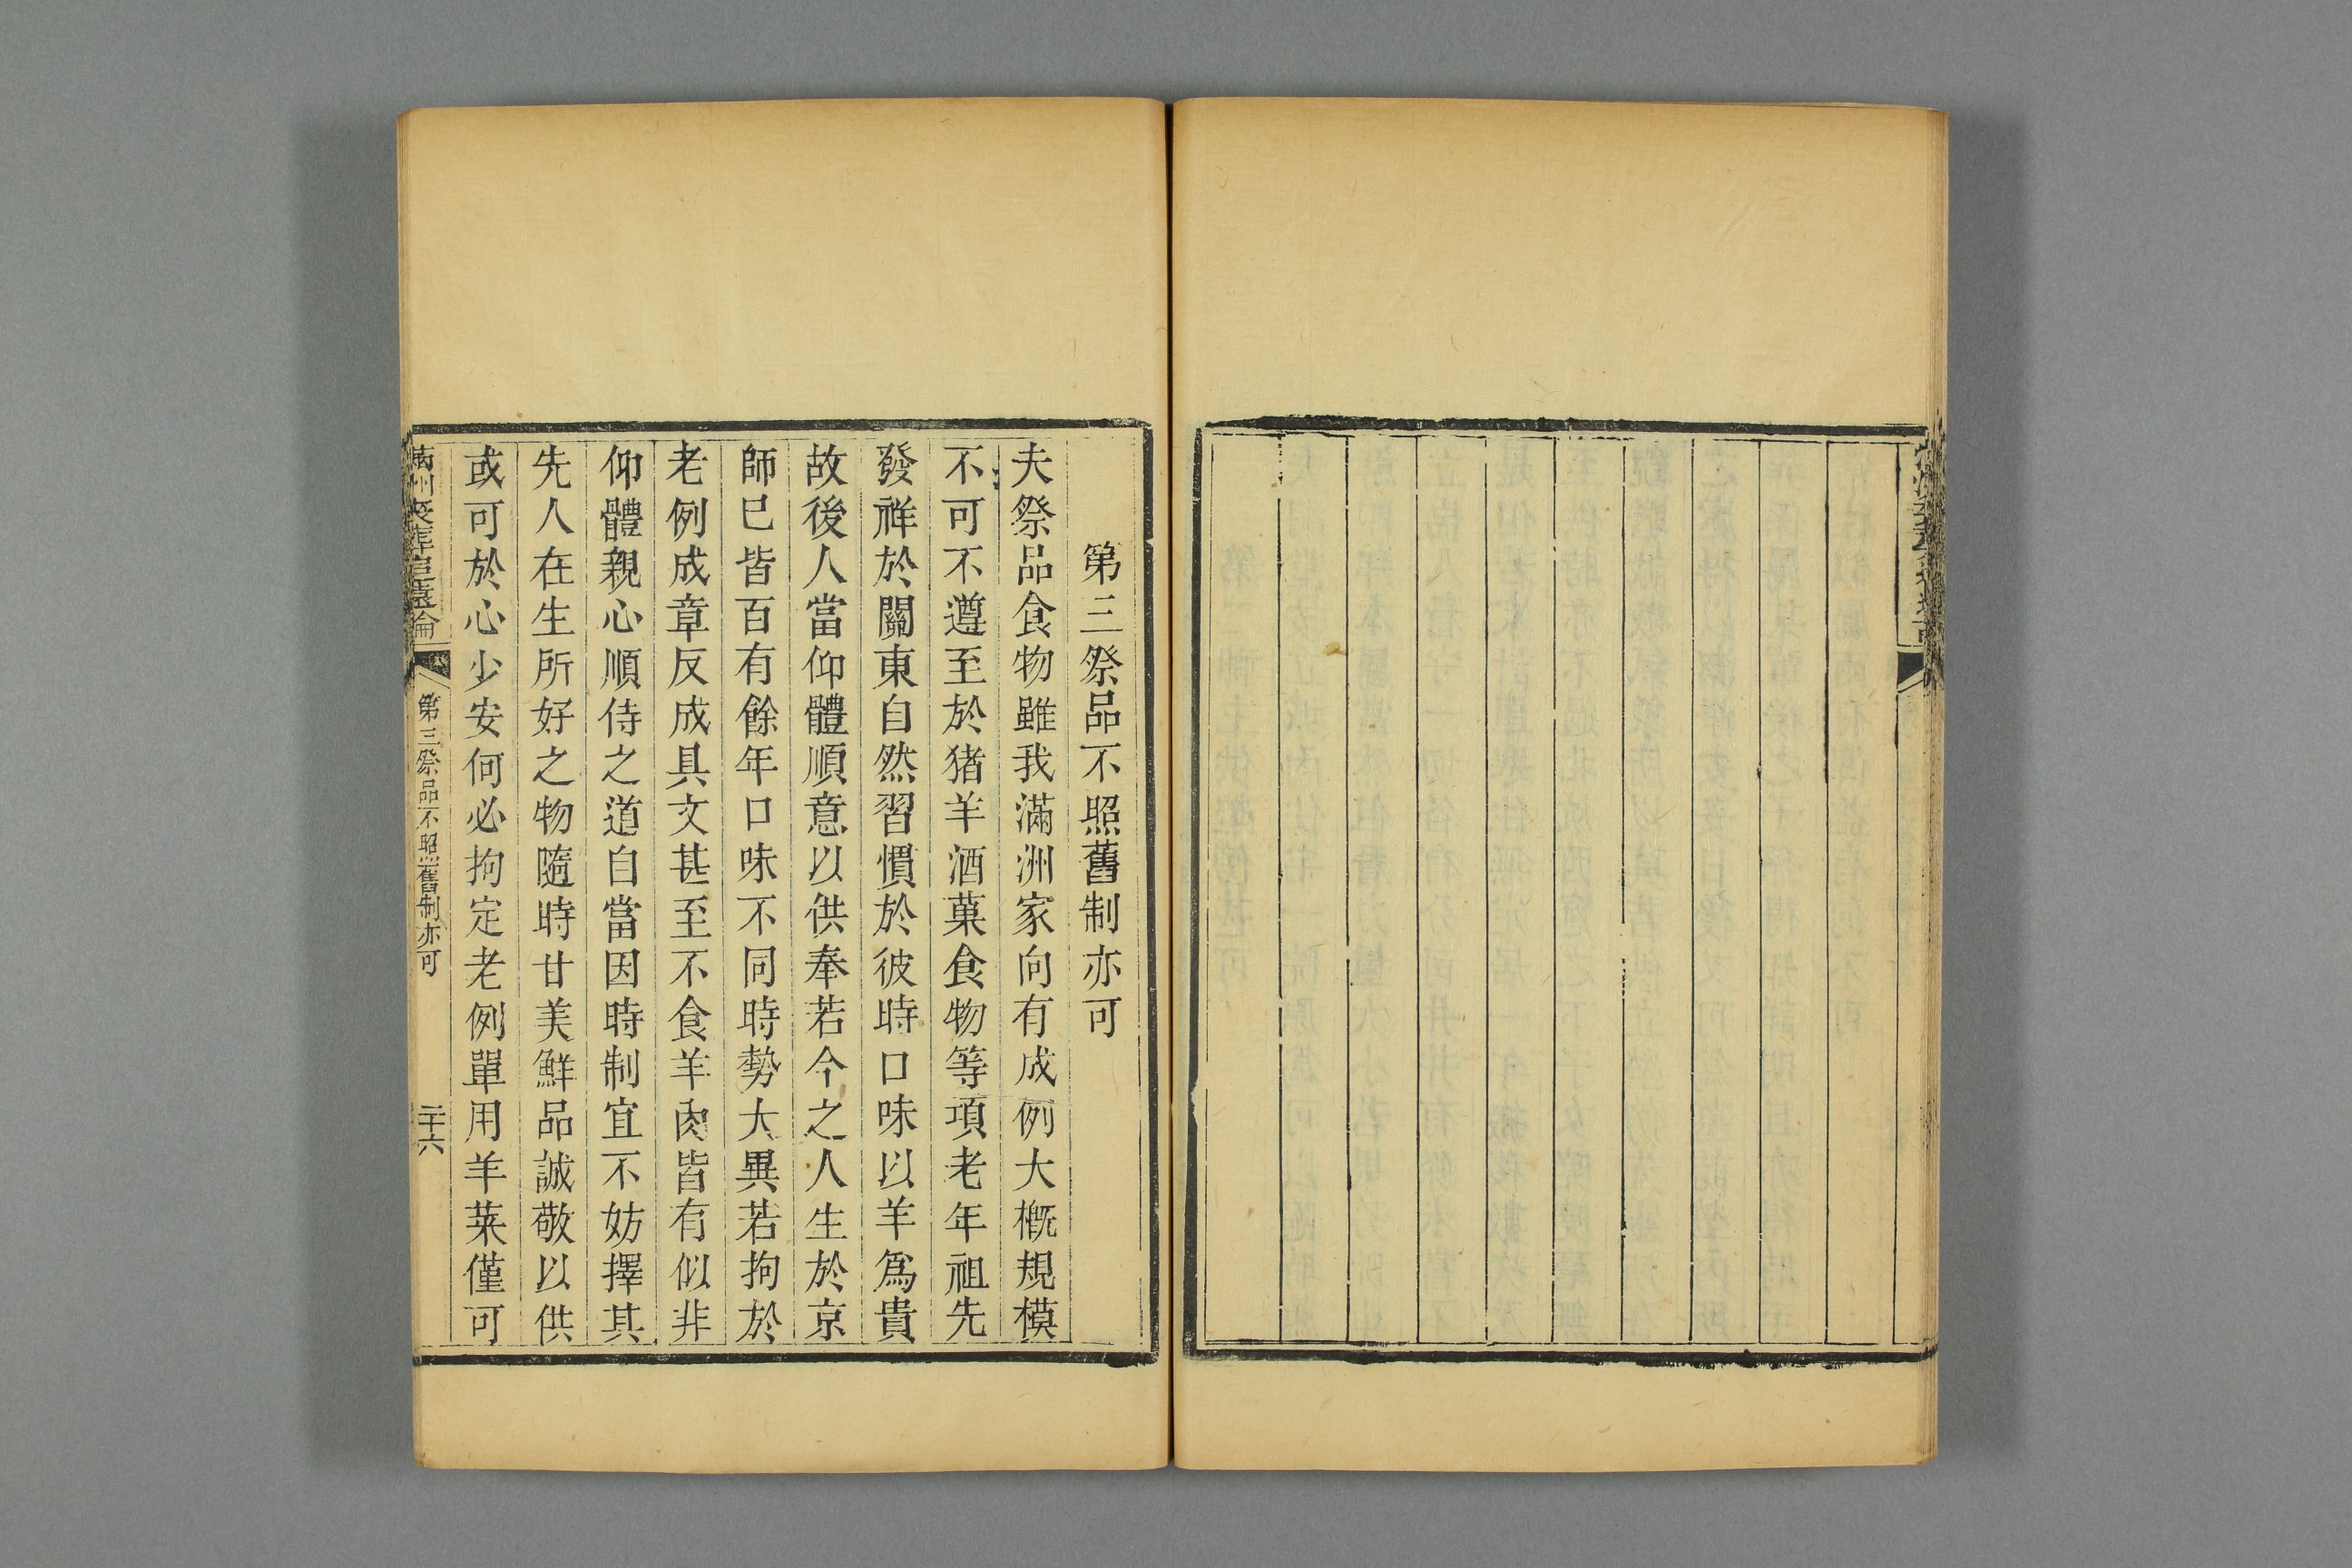 第三祭品不照舊制亦可
夫祭品食物雖我滿洲家向有成例大槪規模
不可不遵至於猪羊酒菓食物等項老年祖先
發祥於關東自然習慣於彼時口味以羊爲貴
故後人當仰體順意以供奉若今之人生於京
師已皆百有餘年口味不同時勢大異若拘於
老例成章反成具文甚至不食羊肉皆有似非
仰體親心順侍之道自當因時制宜不妨擇其
先人在生所好之物隨時甘美鮮品誠敬以供
或可於心少安何必拘定老例單用羊菜僅可
滿洲喪葬追遠論
第三祭品不照舊制亦可
二十六